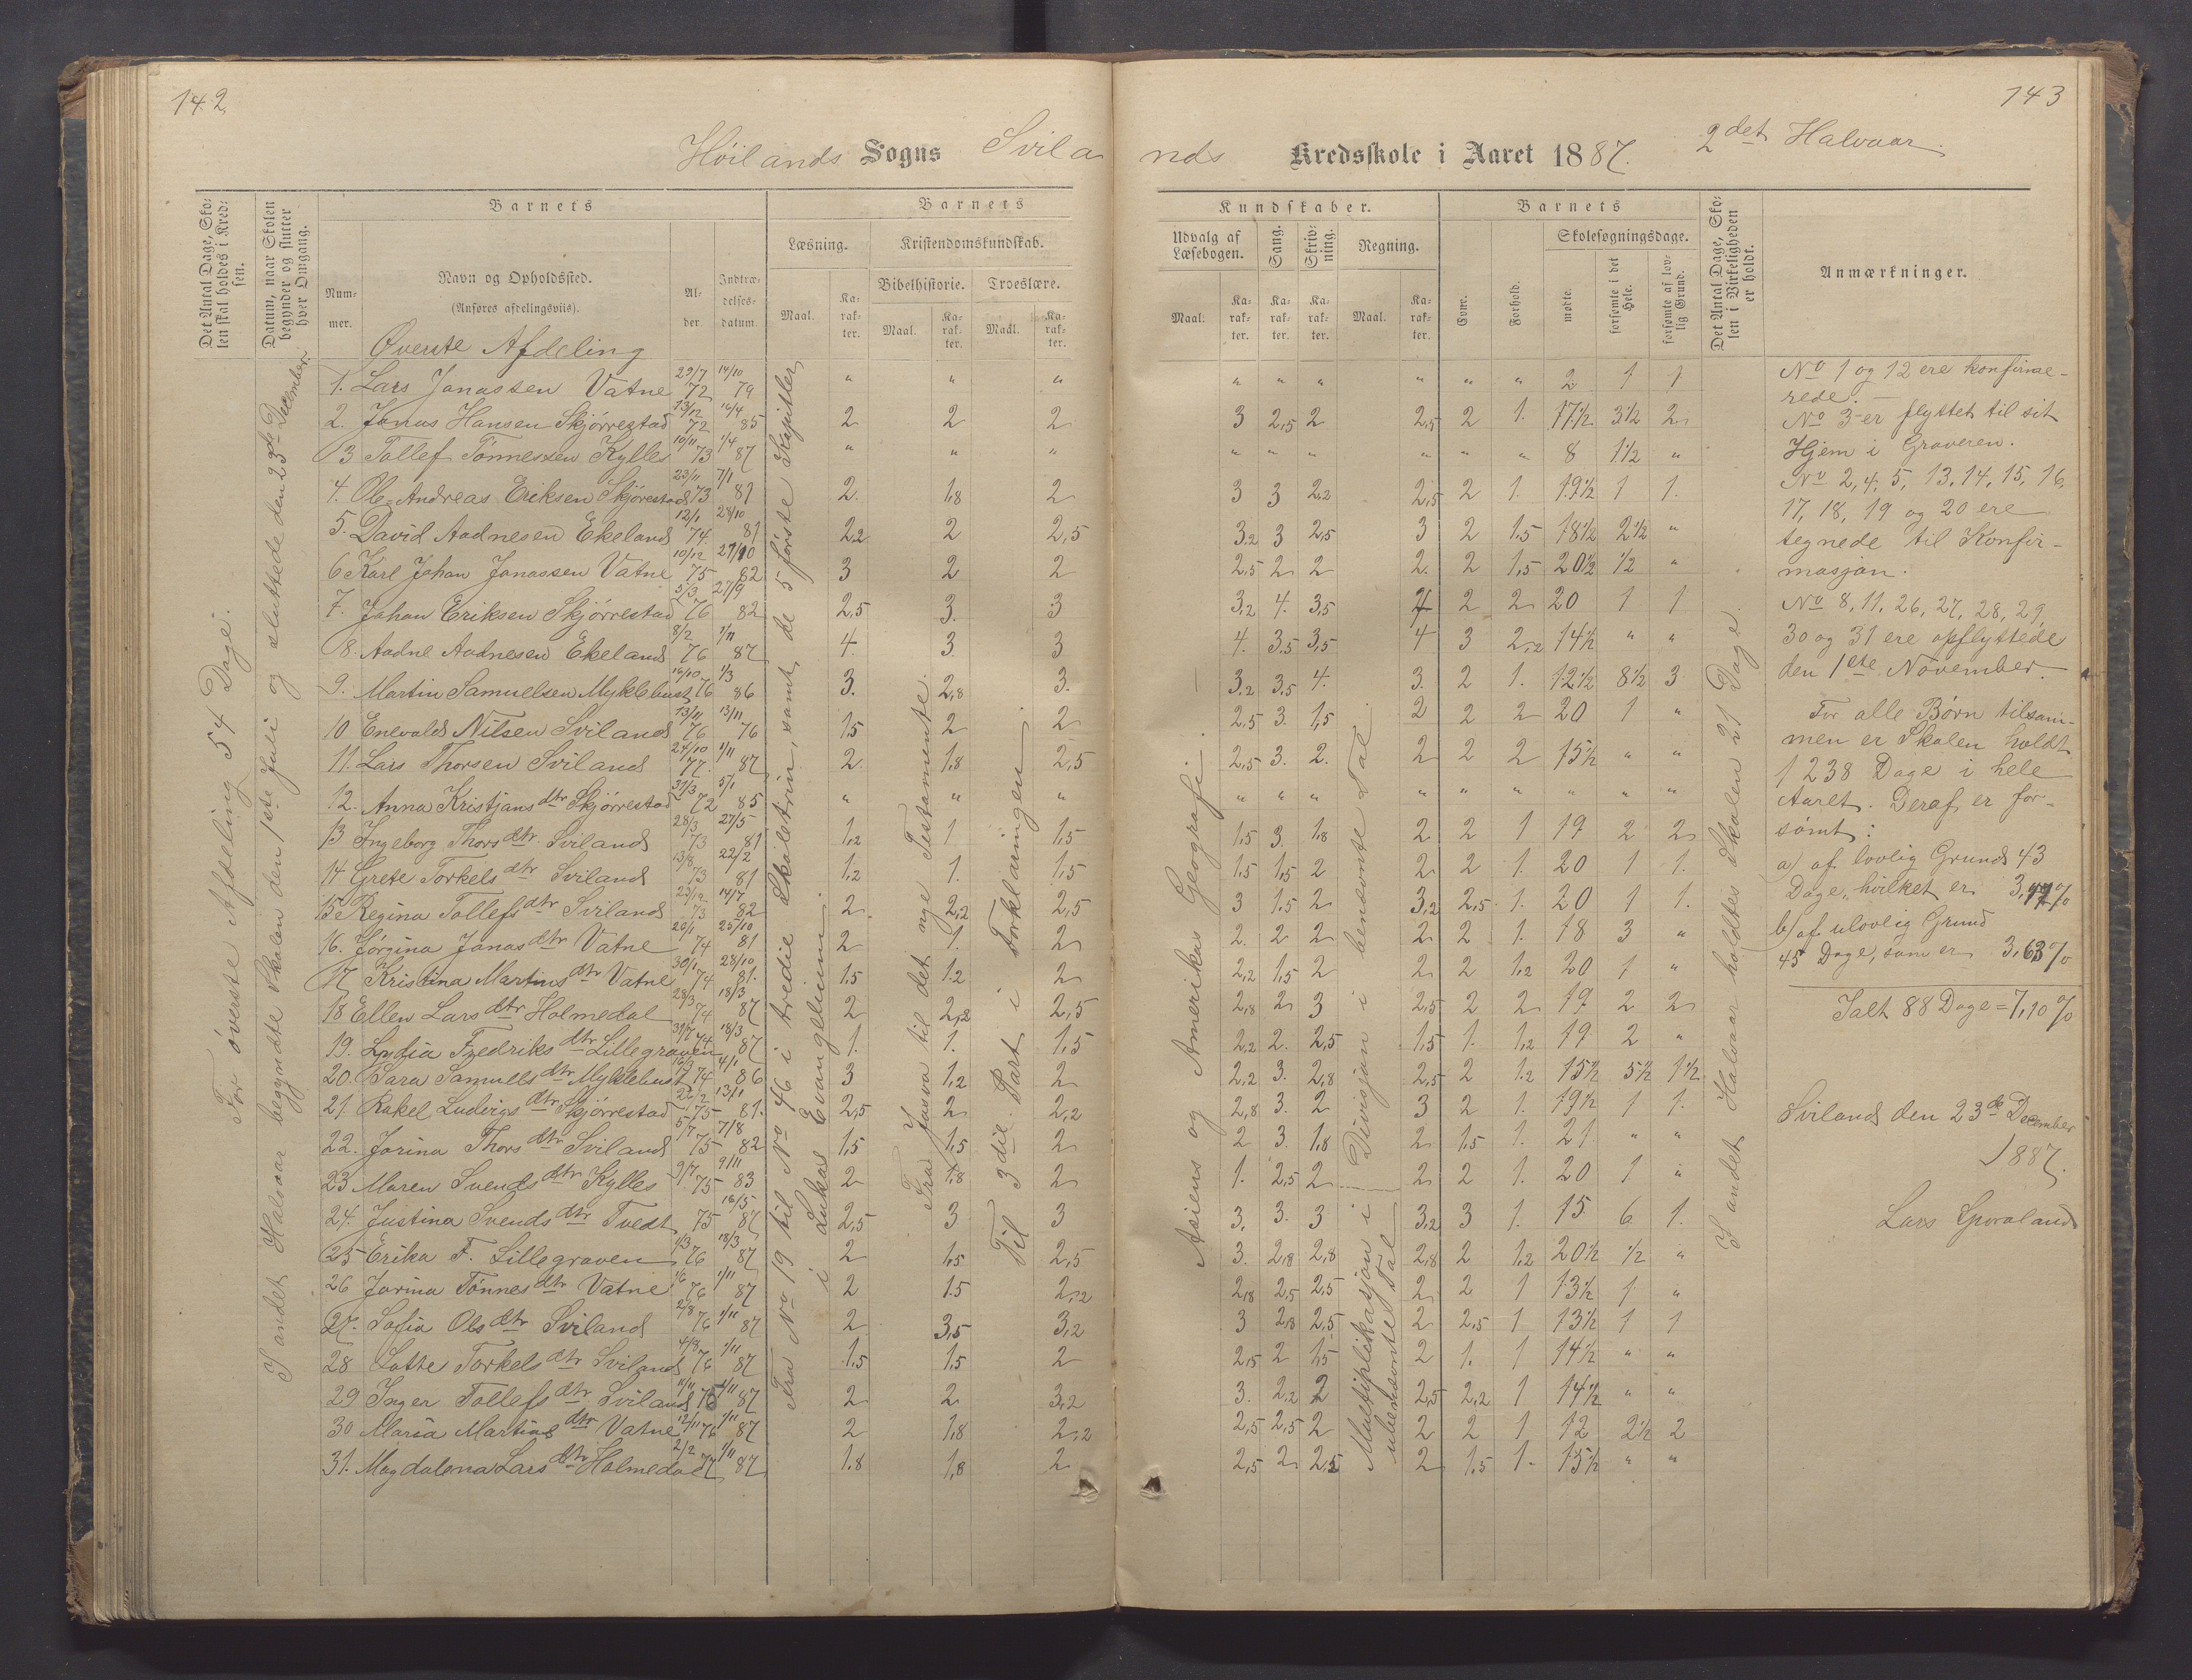 142
143
Höilands Sogns Svilands Kredsskole i Aaret 1887. 2det Halvaar.
Det Antal Dage, Skolen skal holdes i Kredsen.
Datum, naar Skolen begynder og slutter hver Omgang.
Barnets
Nummer.
Navn og Opholdssted.
(Anføres afdelingsviis).
Alder.
Indtrædelsesdatum.
Barnets
Læsning.
Maal.
Karakter.
Kristendomskundskab.
Bibelhistorie.
Maal.
Karakter.
Troeslære.
Maal.
Karakter.
Kundskaber.
Udvalg af Læsebogen.
Maal.
Karakter.
Sang.
Karakter.
Skrivning.
Karakter.
Regning.
Maal.
Karakter.
Barnets
Evne.
Forhold.
Skolesøgningsdage.
mødte.
forsømte i det Hele.
forsømte af lovlig Grund.
Det Antal Dage, Skolen i Virkeligheden er holdt.
Anmærkninger.
For øverste Afdeling 54 Dage.
I andet Halvaar begyndte Skolen den 1ste Juli og sluttede den 23de December.
Øverste Afdeling
1. Lars Janassen Vatne 29/7 72 14/10 79 " " " " " " " " 2 1 1
2. Jonas Hansen Skjørrestad 13/12 72 16/4 85 2 2 2 3 2,5 2 2,5 2 1. 17½ 3½ 2
3 Tollef Tønnessen Kylles 10/11 73 1/4 87 " " " " " " " " 8 1½ "
4. Ole Andreas Eriksen Skjørestad 23/11 73 7/1 81 2. 1,8 2 3 3 2,2 2,5 2 1. 19½ 1 1.
5. David Aadnesen Ekeland 12/1 74 28/10 81 2,2 2 2,5 3,2 3 2,5 3 2 1,5 18½ 2½ "
6 Karl Johan Janassen Vatne 10/12 75 27/10 82 3 2 2 2,5 2 2 2. 2 1,5 20½ ½ "
7. Johan Eriksen Skjørrestad 5/3 76 27/9 82 2,5 3. 3 3,2 4. 3,5 4 2 2 20 1 1
8. Aadne Aadnesen Ekeland 8/2 76 1/11 87 4. 3. 3 4. 3,5 3,5 4 3 2,2 14½ " "
9. Martin Samuelsen Myklebust 16/10 76 1/3 86 3. 2,8 3. 3,2 3,5 4. 3. 2 1. 12½ 8½ 3
10 Enevald Nilsen Sviland 13/11 76 13/11 76 1,5 2 2 2,5 3. 1,5 2 2 2 20 1 "
11. Lars Thorsen Sviland 24/10 77. 1/11 87 2. 1,8 2,5 2,5 3. 2. 2 2 2 15½ " "
12. Anna Kristjans dtr Skjørrestad 31/3 72 5/1 85 " " " " " " " " " " " "
13 Ingeborg Thors dtr. Sviland 28/3 73 27/5 81 1,2 1 1,5 1,5 3 1,8 2 2 1 19 2 2
14 Grete Torkels dtr Sviland 13/8 73 22/2 81 1,2 1. 1,5 1,5 1,5 2 2 2 1. 20 1 1.
15 Regina Tollefs dtr Sviland 23/12 73 14/7 82 2 2,2 2,5 3 1,5 2 3,2 2,5 1. 20 1 1.
16. Jørgina Jonas dtr Vatne 20/1 74 25/10 81 2 1. 2 2. 2 2 2 2 1. 18 3 "
17 Kristina Martins dtr Vatne 30/1 74 28/10 81. 1,5 1,2 2 2,2 1,5 2 2 2 1,2 20 1 "
18 Ellen Lars dtr Holmedal 28/3 74 18/3 87 2 2,2 2,5 2,8 2 3 2,5 2 2 19 2 2
19. Lydia Fredriks dtr Lillegraven 31/7 74 18/3 87 1. 1. 1,5 2,2 2. 2,5 1,5 1. 1,2 19 2 "
20. Sara Samuels dtr Myklebust 74 4/1 86 3 1,2 2 2,2 3. 2,8 2,5 2 1,2 15½ 5½ 1½
21. Rakel Ludvigs dtr Skjørrestad 22/2 75 13/1 81. 2,5 2 2,2 2,8 3. 2 3 2 1. 19½ 1 1.
22. Jorina Thors dtr Sviland 5/7 75 7/8 82 1,5 1,5 2 2 3. 1,8 2 1,5 1. 21 " "
23 Maren Svends dtr Kylles 9/7 75 9/11 83 2 1,8 2 1. 2,5 2 2 2 1. 20 1 "
24. Justina Svends dtr Tvedt 75 16/5 87 2,5 3 3 3. 3. 3 3,2 3 1. 15 6 1.
25 Erika F. Lillegraven 1/3 76 18/3 87 2 1,5 2,5 3. 2,8 2,8 2,8 2 1,2 20½ ½ "
26 Jorina Tønnes dtr Vatne 1/6 76 1/11 87 2 1.5 2,2 2,8 2,5 2,5 2 2 1 13½ 1 "
27. Sofia Ols dtr Sviland 2/8 76 1/11 87 2 3,5 3,2 3 2,8 2,5 2 2,5 1 13½ 1 1
28 Lotte Torkels dtr Sviland 4/8 76 1/11 87 1,5 1,5 2 2,5 2 1,5 2 1. 1 14½ " "
29 Inger Tollefs dtr Sviland 11/11 76 1/11 87 2 2 3,2 3. 2,2 2 2,5 2,2 1 14½ " "
30 Maria Martins dtr Vatne 12/11 76 1/11 87 2 1,8 2,2 2,5 2,5 2 2 2 1 12 2½ 2
31. Magdalena Lars dtr Holmedal 2/2 77 1/11 87 1.8 1,8 2 2,5 2 2,5 2 1,5 1 15½ " "
Fra No 19 til No 46 i tredie Skoletrin, samt de 5 første Kapitler
i Lukas Evangelium.
Fra Josva til det nye Testamente.
Til 3die Part i Forklaringen.
Asiens og Amerikas Geografi.
Divisjon i benævnte Tal.
Multiplikasjon i ubenævnte Tal
I andet Halvaar holdtes Skolen 21 Dage
No 1 og 12 ere konfirme-
rede.
No 3 er flyttet til sit
Hjem i Graveren.
No 2, 4, 5, 13, 14, 15, 16,
17, 18, 19 og 20 ere
tegnede til Konfir-
masjon.
No 8, 11, 26, 27, 28, 29,
30 og 31 ere opflyttede
den 1ste November.
For alle Børn tilsam-
men er Skolen holdt
1238 Dage i hele
Aaret. Deraf er for-
sømt:
a) af lovlig Grund 43
Dage, hvilket er 3,47%
b) af ulovlig Grund
45 Dage, som er 3,63%
Ialt 88 Dage = 7,10%
Sviland den 23de December
1887.
Lars Sporaland